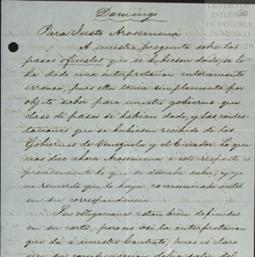 Domingo
Para Justo Arosemena
A nuestra pregunta sobre los
pasos oficiales que se hubiesen dado, se le
ha dado una interpretacion enteramente
erronea, pues ella tenia simplemente por
objeto saber para nuestro gobierno que
clase de pasos se habian dado, y las contes-
taciones que se hubiesen recibido de los
Gobiernos de Venezuela y el Ecuador. Lo que
nos dice ahora Arosemena a este respecto es
precisamente lo que se deseaba saber, y yo
no recuerdo que lo haya comunicado antes
en su correspondencia.
Sus obligaciones estan bien definidas
en su carta, pero no asi la interpretacion
que dá a nuestro
CENTRO
ESTUDIOS
DE HISTORIA
DE MEXICO